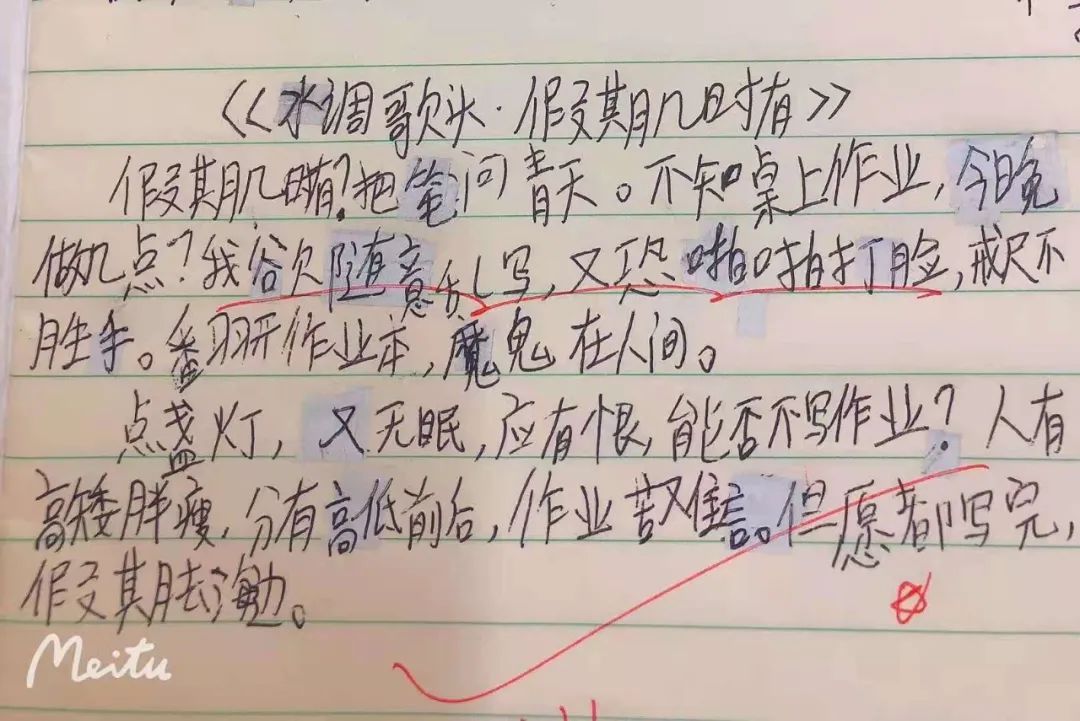 《水调歌头·假期几时有》
假期几时有？把笔问青天。不知桌上作业，今日兔
做几点？我欲随意乱写，又恐啪啪打脸，戒尺不
胜手。翻开作业本，魔鬼在人间。
点盏灯，又无眠，应有恨，能否不写作业？人有
高矮胖瘦，分有高低前后，作业苦难言。但愿都写完，
假期去海边。
Meitu